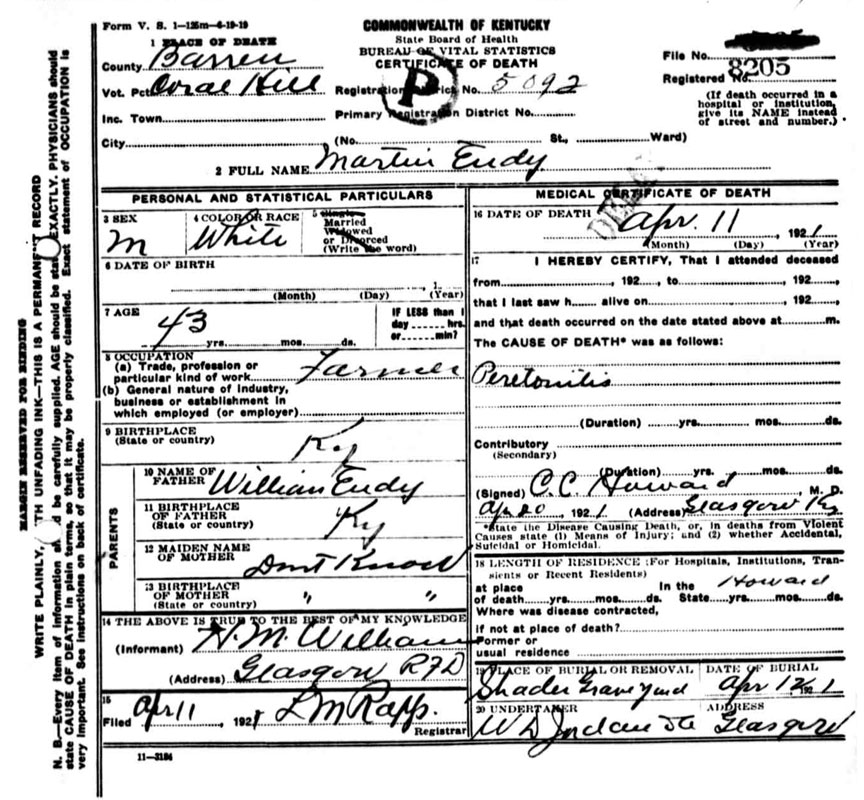 Form V. S. 1—125m—4-19-19
COMMONWEALTH OF KENTUCKY
State Board of Health
BUREAU OF VITAL STATISTICS
CERTIFICATE OF DEATH
1 PLACE OF DEATH
County Barren
Vot. Pct. Coral Hill
Inc. Town
City
Registration District No. 5092
P
Primary Registration District No.
(No. St., Ward)
File No.
Registered No. 8205
(If death occurred in a
hospital or institution,
give its NAME instead
of street and number.)
2 FULL NAME Martin Eudy
PERSONAL AND STATISTICAL PARTICULARS
3 SEX
M
4 COLOR OR RACE
White
5 Single
Married
Widowed
or Divorced
(Write the word)
6 DATE OF BIRTH
1
(Month) (Day) (Year)
7 AGE
43 yrs. mos. ds.
IF LESS than 1
day hrs.
or min?
8 OCCUPATION
(a) Trade, profession or
particular kind of work Farmer
(b) General nature of industry,
business or establishment in
which employed (or employer)
9 BIRTHPLACE
(State or country) Ky
PARENTS
10 NAME OF
FATHER William Eudy
11 BIRTHPLACE
OF FATHER
(State or country) Ky
12 MAIDEN NAME
OF MOTHER Dont Know
13 BIRTHPLACE
OF MOTHER
(State or country) " "
14 THE ABOVE IS TRUE TO THE BEST OF MY KNOWLEDGE
(Informant) H. M. William
(Address) Glasgow RFD
15
Filed Apr 11, 1921 L M Rapp.
Registrar
11—3184
MEDICAL CERTIFICATE OF DEATH
16 DATE OF DEATH Apr. 11, 1921
(Month) (Day) (Year)
17 I HEREBY CERTIFY, That I attended deceased
from, 192, to, 192,
that I last saw h alive on, 192,
and that death occurred on the date stated above at m.
The CAUSE OF DEATH* was as follows:
Peretonitis
(Duration) yrs. mos. ds.
Contributory
(Secondary)
(Duration) yrs. mos. ds.
(Signed) C. C. Howard, M. D.
Apr 20, 1921 (Address) Glasgow Ky
*State the Disease Causing Death, or, in deaths from Violent
Causes state (1) Means of Injury; and (2) whether Accidental,
Suicidal or Homicidal.
18 LENGTH OF RESIDENCE (For Hospitals, Institutions, Tran-
sients or Recent Residents)
at place In the Howard
of death yrs. mos. ds. State yrs. mos. ds.
Where was disease contracted,
if not at place of death?
Former or
usual residence
19 PLACE OF BURIAL OR REMOVAL
Shader Graveyard
DATE OF BURIAL
Apr 12 1921
20 UNDERTAKER
W D Jordan
ADDRESS
Glasgow
MARGIN RESERVED FOR BINDING
WRITE PLAINLY, WITH UNFADING INK—THIS IS A PERMANENT RECORD
N. B.—Every item of information should be carefully supplied. AGE should be stated EXACTLY. PHYSICIANS should
state CAUSE OF DEATH in plain terms, so that it may be properly classified. Exact statement of OCCUPATION is
very important. See instructions on back of certificate.